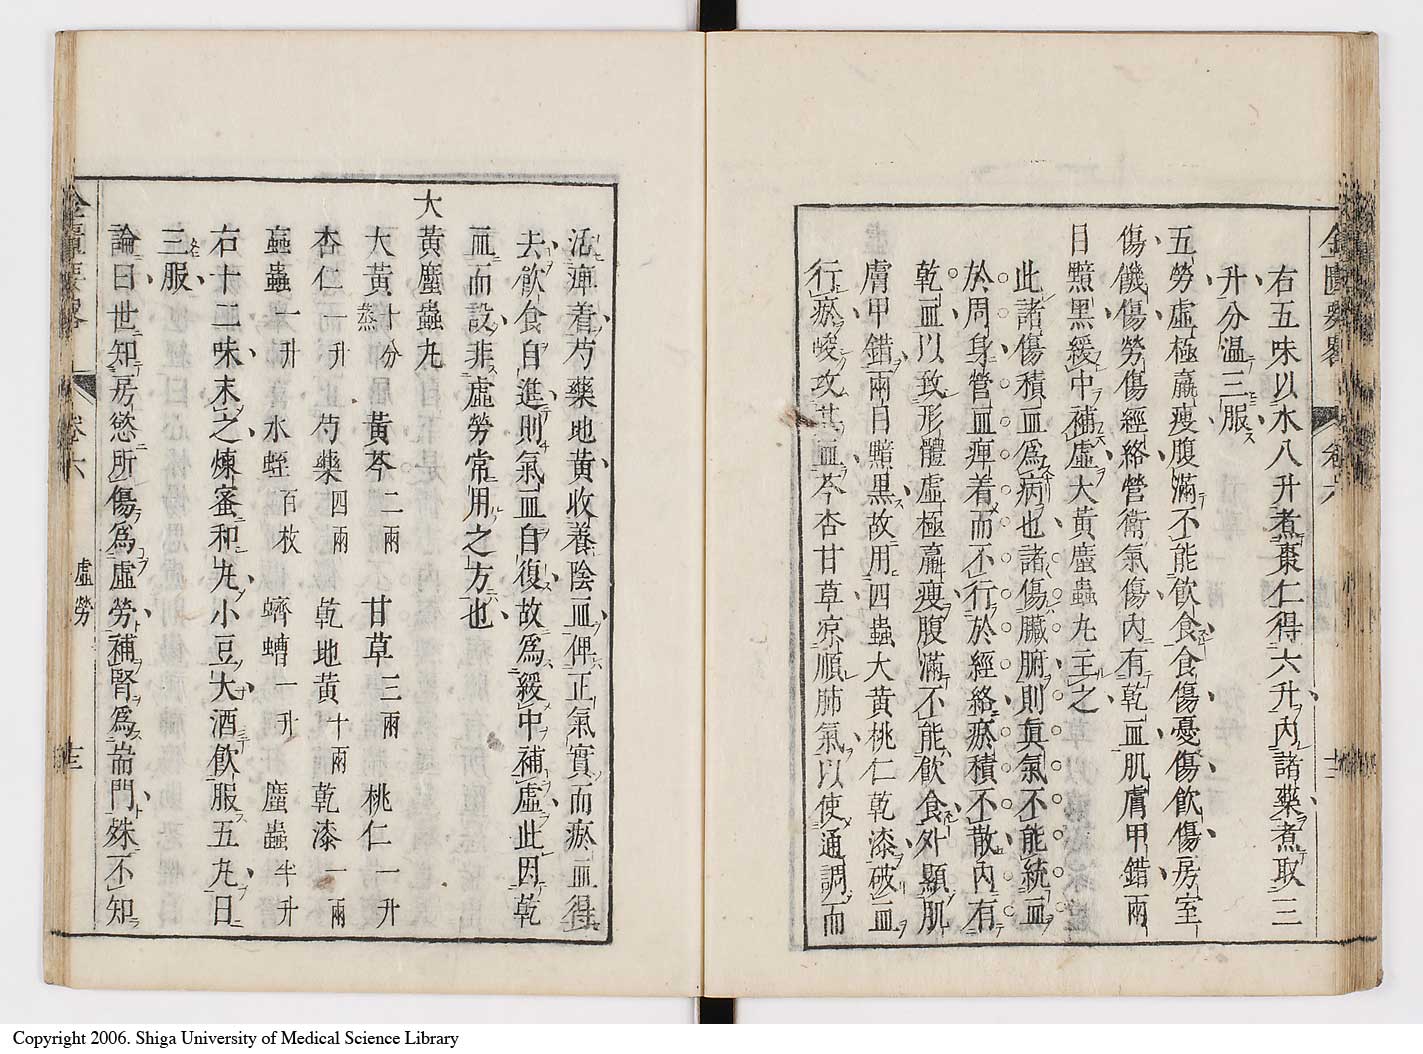 右五味以水八升煮棗仁得六升內諸藥煮取三
升分温三服
五勞虛極羸瘦腹滿不能飲食食傷憂傷飲傷房室
傷饑傷勞傷經絡營衛氣傷內有乾血肌膚甲錯兩
目黯黑緩中補虛大黃䗪蟲丸主之
此諸傷積血爲病也諸傷臟腑則眞氣不能統血
於周身營血痺着而不行於經絡瘀積不散內有
乾血以致形體虛極羸瘦腹滿不能飲食外顯肌
膚甲錯兩目黯黑故用四蟲大黃桃仁乾漆破血
行瘀峻攻其血芩杏甘草凉順肺氣以使通調而
活痺着芍藥地黃收養陰血俾正氣實而瘀血得
去飲食自進則氣血自復故爲緩中補虛此因乾
血而設非虛勞常用之方也
大黃䗪蟲丸
大黃十分蒸 黃芩二兩 甘草三兩 桃仁一升
杏仁一升 芍藥四兩 乾地黃十兩 乾漆一兩
蝱蟲一升 水蛭百枚 蠐螬一升 䗪蟲半升
右十二味末之煉蜜和丸小豆大酒飲服五丸日
三服
論曰世知房慾所傷爲虛勞補腎爲耑門姝不知
卷六 虛勞 十三
Copyright 2006. Shiga University of Medical Science Library